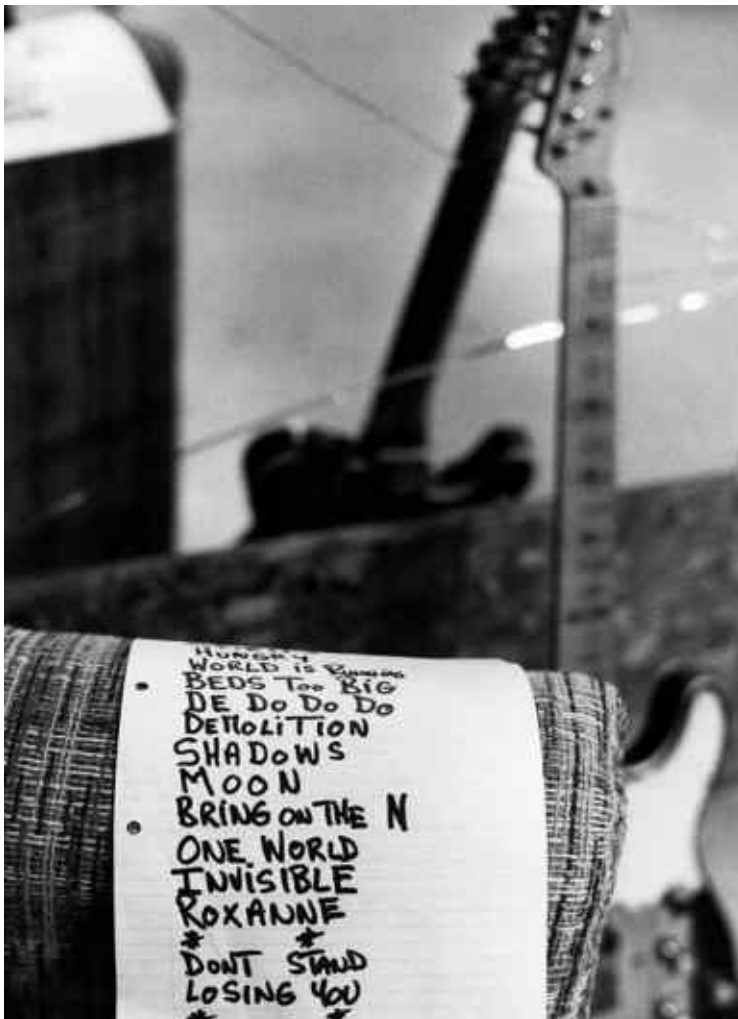 HUNGRY
WORLD is RUNNING
BEDS Too BiG
DE Do Do Do
DEMOLiTiON
SHADoWS
MOON
BRiNG ON THE N
ONE WORLD
INViSIBLE
ROXANNE
* *
DONT STAND
LOSING YOU
* *